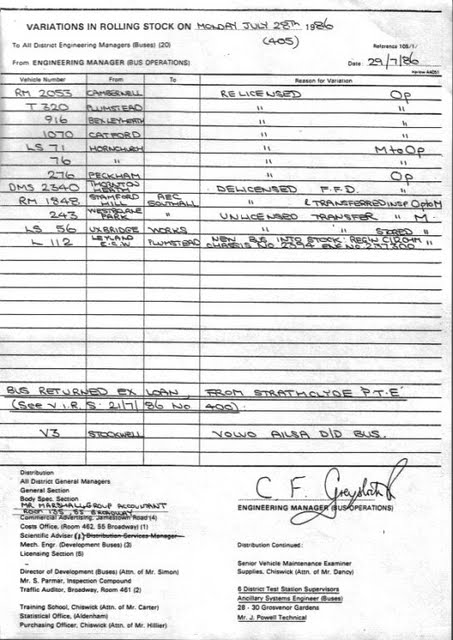 VARIATIONS IN ROLLING STOCK ON MONDAY JULY 28TH 1986
(405)
To All District Engineering Managers (Buses) (20)
Reference 105/1/
From ENGINEERING MANAGER (BUS OPERATIONS)
Date: 29/7/86
Vehicle Number From To Reason for Variation
RM 2053 CAMBERWELL RELICENSED Op
T 320 PLUMSTEAD " "
916 BEXLEYHEATH " "
1070 CATFORD " "
LS 71 HORNCHURCH " M to Op
76 " " "
276 PECKHAM " Op
DMS 2340 THORNTON HEATH DELICENSED F.F.D. "
RM 1848 STAMFORD HILL AEC SOUTHALL " & TRANSFERRED INSP Op to M
243 WESTBOURNE PARK " UNLICENSED TRANSFER " M.
LS 56 UXBRIDGE WORKS " " STORED "
L 112 LEYLAND E.C.W PLUMSTEAD NEW BUS INTO STOCK: REG'N C112CHM "
CHASSIS No ENG No
BUS RETURNED EX LOAN, FROM STRATHCLYDE 'P.T.E'
(See V.I.R.S. 21/7/86 No. 400).
V3 STOCKWELL VOLVO AILSA D/D BUS.
Distribution
All District General Managers
General Section
Body Spec. Section
MR MARSHALL, GROUP ACCOUNTANT
ROOM 135, 55 BROADWAY
Commercial Advertising, Jamestown Road (4)
Costs Office, (Room 462, 55 Broadway) (1)
Scientific Adviser (1) Distribution Services Manager
Mech. Engr. (Development Buses) (3)
Licensing Section (5)
Director of Development (Buses) (Attn. of Mr. Simon)
Mr. S. Parmar, Inspection Compound
Traffic Auditor, Broadway, Room 461 (2)
Training School, Chiswick (Attn. of Mr. Carter)
Statistical Office, (Aldenham)
Purchasing Officer, Chiswick (Attn. of Mr. Hillier)
C. F.
ENGINEERING MANAGER (BUS OPERATIONS)
Distribution Continued:
Senior Vehicle Maintenance Examiner
Supplies, Chiswick (Attn. of Mr. Dancy)
6 District Test Station Supervisors
Ancillary Systems Engineer (Buses)
28 - 30 Grosvenor Gardens
Mr. J. Powell Technical